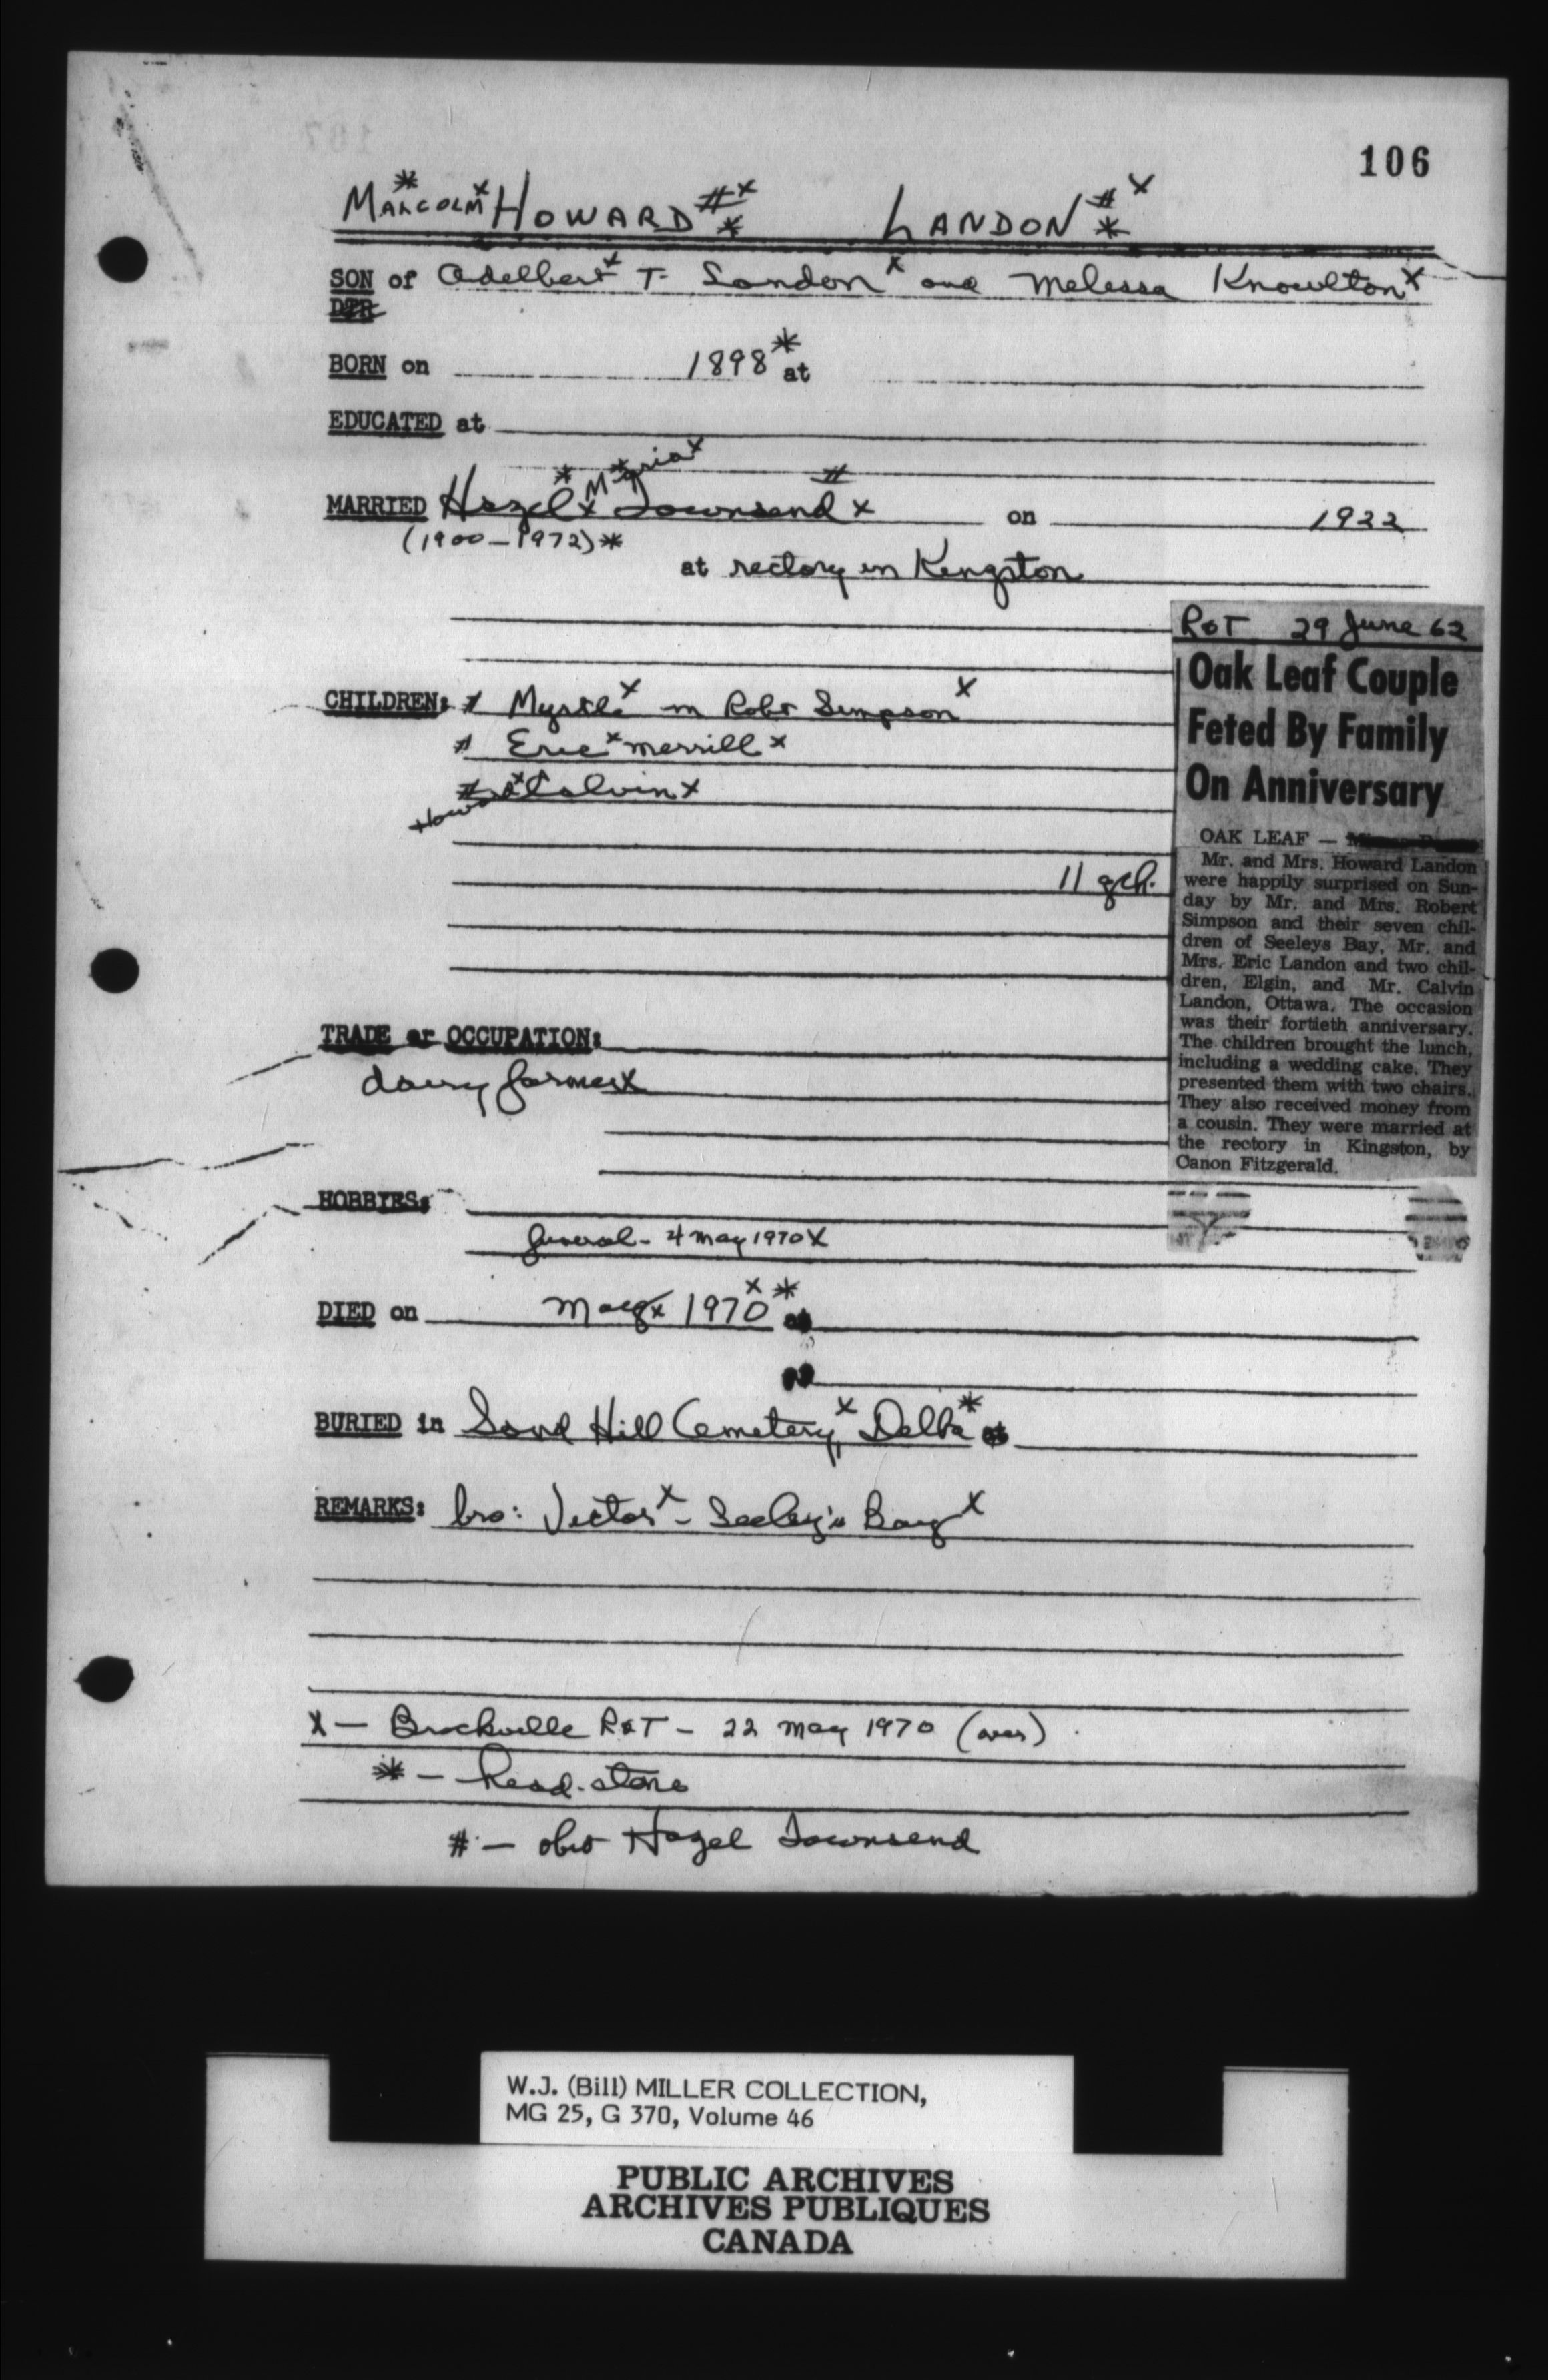 106
MALCOLM* x HOWARD # x * LANDON # x *
SON of Adelbert x T. Landon x and Melessa Knowlton x
DTR
BORN on 1898 * at
EDUCATED at
MARRIED Hazel * x Maria * x Townsend # x on 1922
(1900-1972) *
at rectory in Kingston
CHILDREN: # Myrtle x m Robt Simpson x
# Eric x Merrill x
# Howard x Calvin x
11 gch.
R&T 29 June 62
Oak Leaf Couple
Feted By Family
On Anniversary
OAK LEAF —
Mr. and Mrs. Howard Landon
were happily surprised on Sun-
day by Mr. and Mrs. Robert
Simpson and their seven chil-
dren of Seeleys Bay, Mr. and
Mrs. Eric Landon and two chil-
dren, Elgin, and Mr. Calvin
Landon, Ottawa. The occasion
was their fortieth anniversary.
The children brought the lunch,
including a wedding cake. They
presented them with two chairs.
They also received money from
a cousin. They were married at
the rectory in Kingston, by
Canon Fitzgerald.
TRADE or OCCUPATION:
dairy farmer x
HOBBIES:
funeral - 4 May 1970 x
DIED on May x 1970 x * at
BURIED in Sand Hill Cemetery, x Delta * at
REMARKS: bro: Victor x - Seeley's Bay x
x — Brockville R&T - 22 May 1970 (over)
* — head-stone
# — obit Hazel Townsend
W.J. (Bill) MILLER COLLECTION,
MG 25, G 370, Volume 46
PUBLIC ARCHIVES
ARCHIVES PUBLIQUES
CANADA